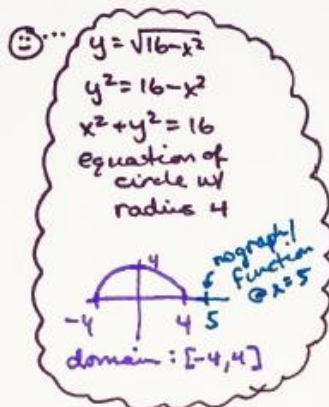 y = √16-x²
y² = 16-x²
x² + y² = 16
equation of
circle w/
radius 4
4
no graph/
function
@ x=5
-4
4
5
domain: [-4, 4]